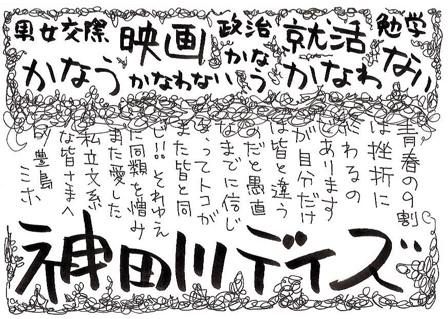 男女交際 映画 政治 就活 勉学
かなう かなわない かなう かなわ ない
青春の9割
は挫折に
終わるの
であります
が自分だけ
は皆と違う
のだと愚直
なまでに信じ
きってトコが
また皆と同
じ!!それゆえ
に同類を憎み
また愛した
私立文系
な皆さまへ
by豊島
ミホ
神田川デイズ